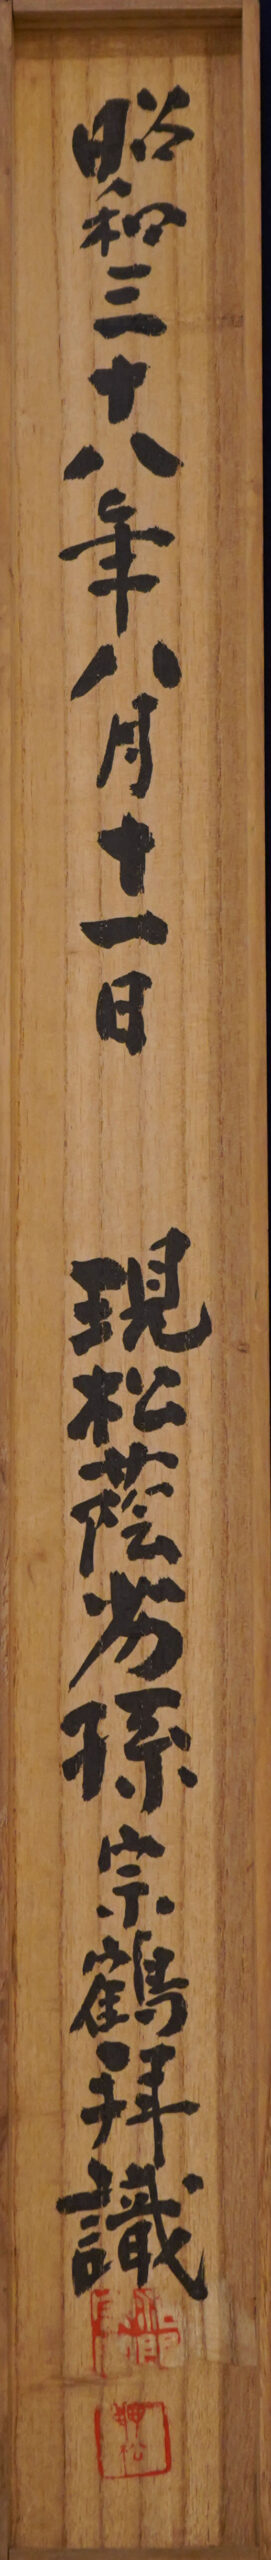 昭和三十八年八月十一日 現松蔭劣孫宗鶴拝識